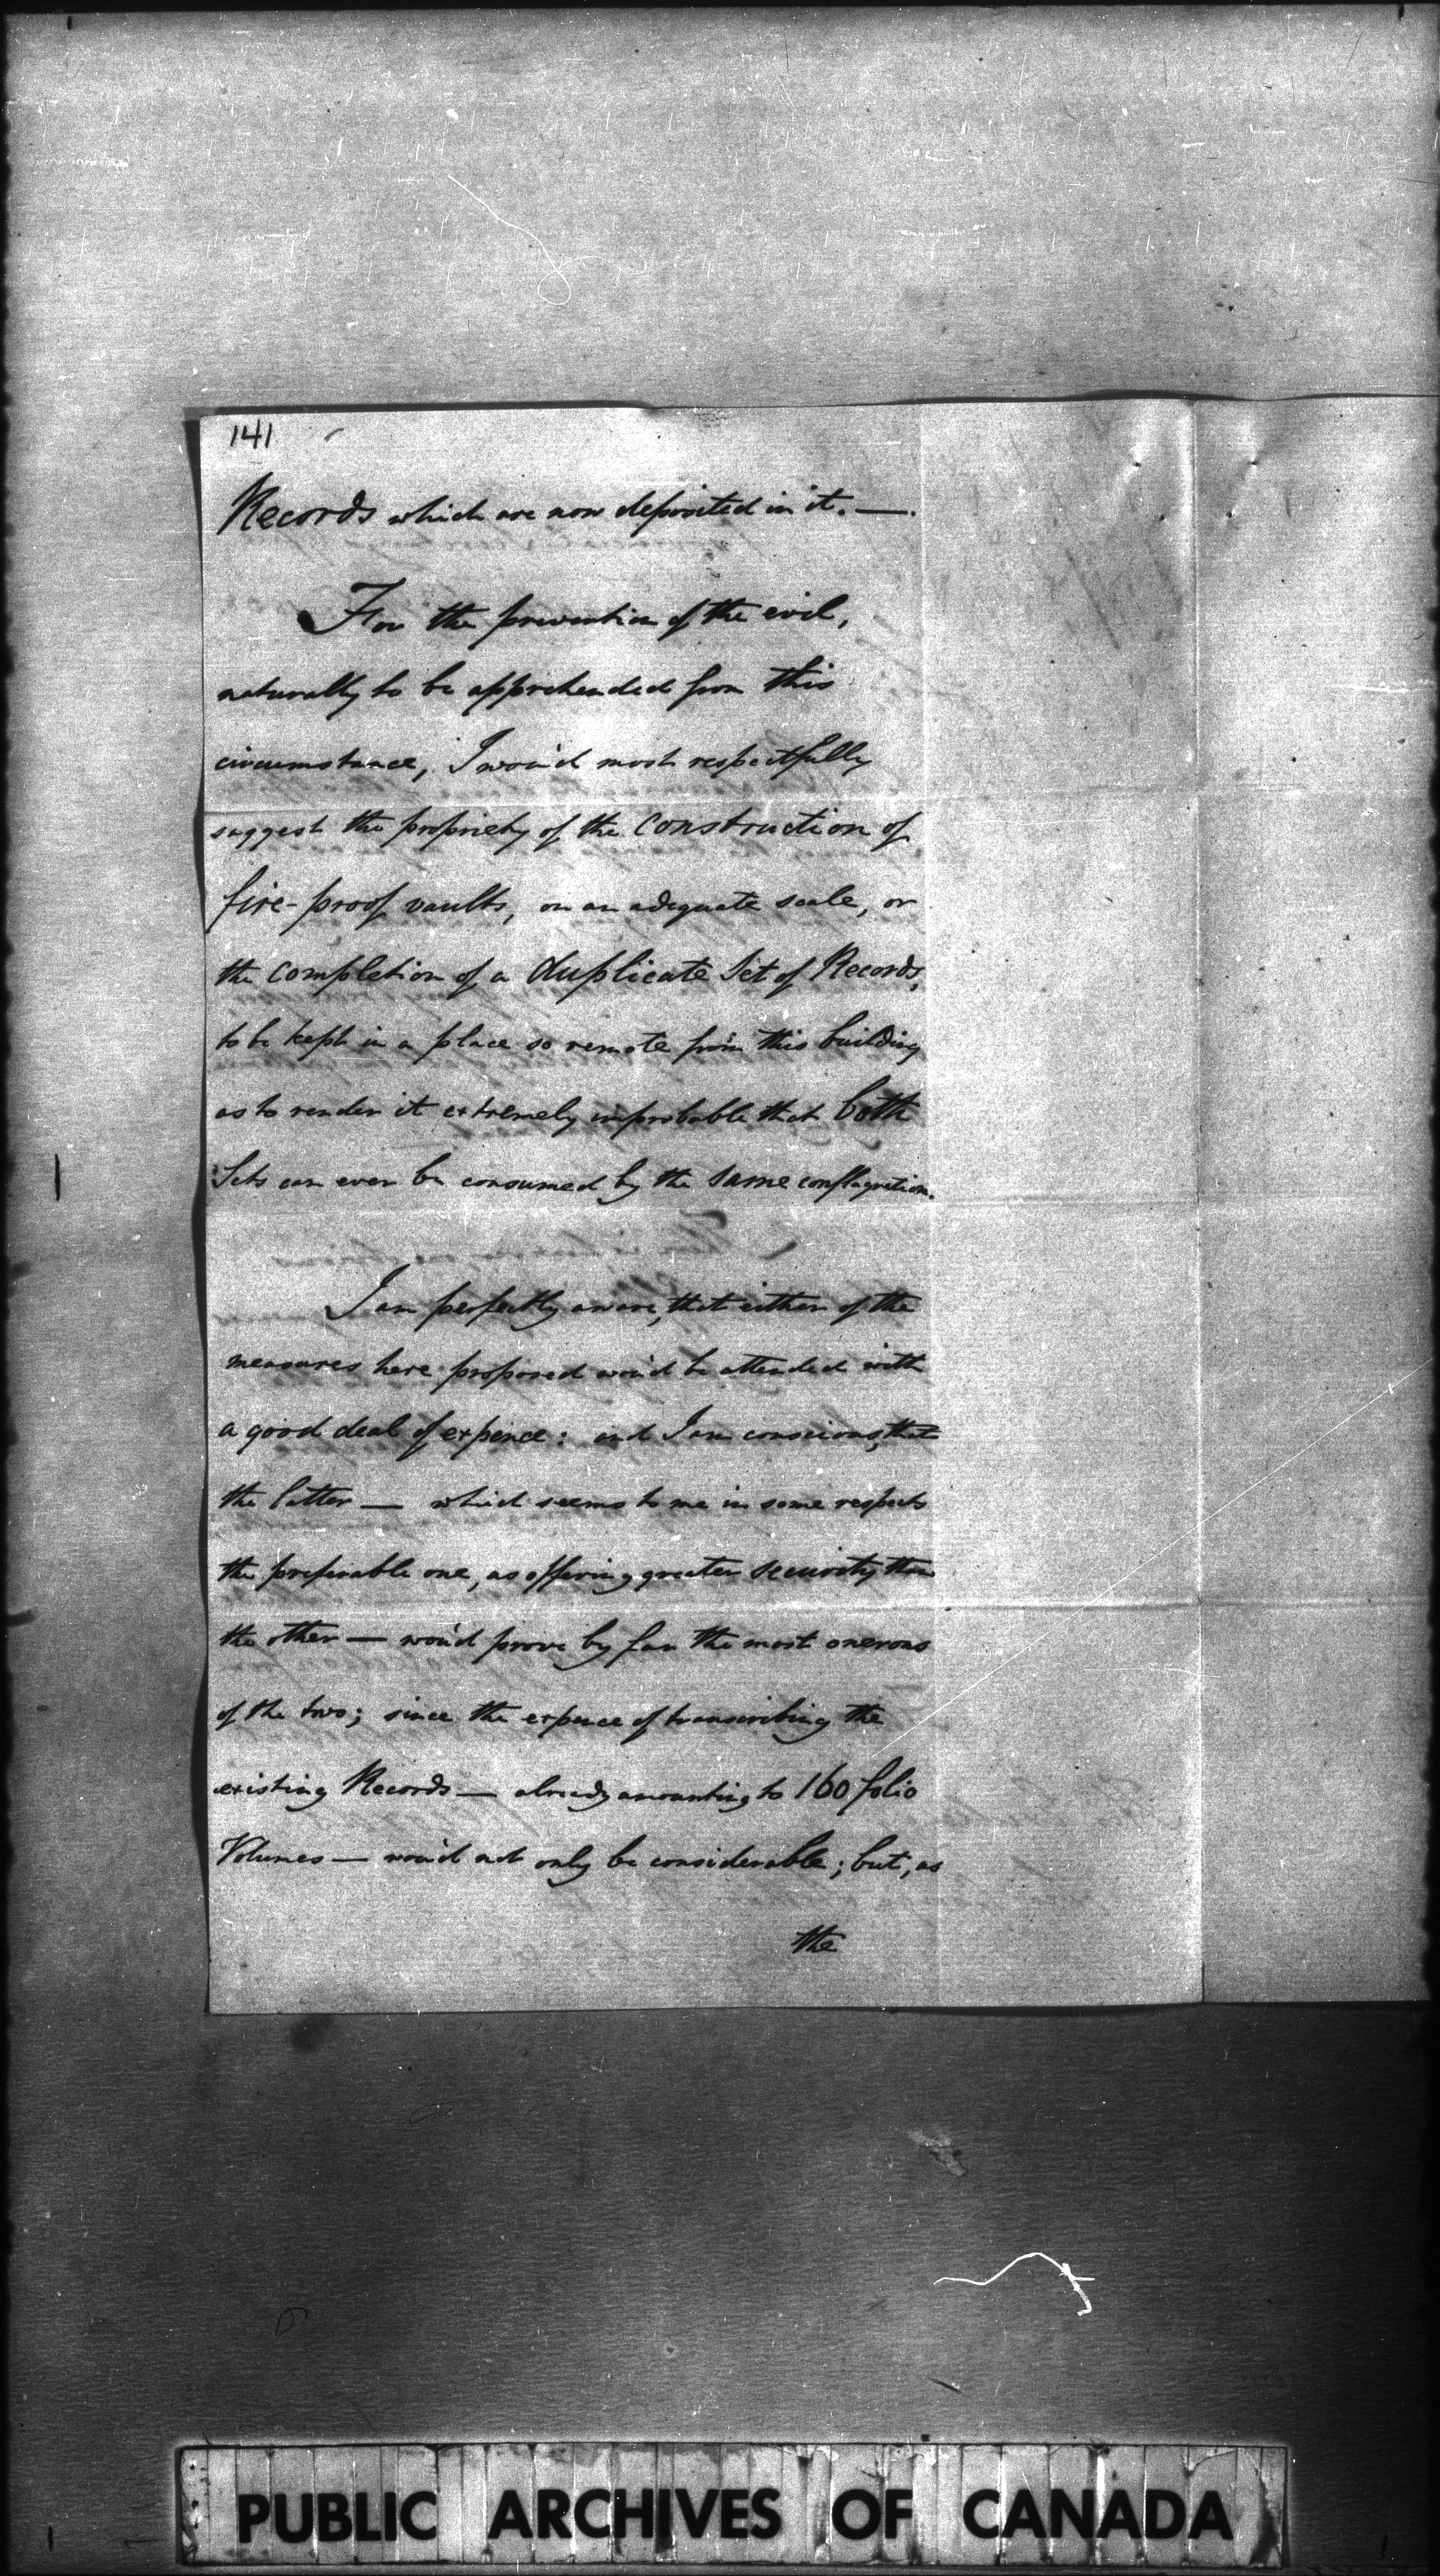 141
Records which are now deposited in it. —.
For the prevention of the evil,
naturally to be apprehended from this
circumstance, I wou'd most respectfully
suggest the propriety of the construction of
fire-proof vaults, on an adequate scale, or
the completion of a duplicate Set of Records,
to be kept in a place so remote from this building
as to render it extremely improbable that both
Sets can ever be consumed by the same conflagration.
I am perfectly aware, that either of the
measures here proposed wou'd be attended with
a good deal of expence: and I am conscious, that
the latter — which seems to me in some respects
the preferable one, as offering greater security than
the other — wou'd prove by far the most onerous
of the two; since the expence of transcribing the
existing Records — already amounting to 160 folio
Volumes — wou'd not only be considerable; but, as
the
PUBLIC ARCHIVES OF CANADA